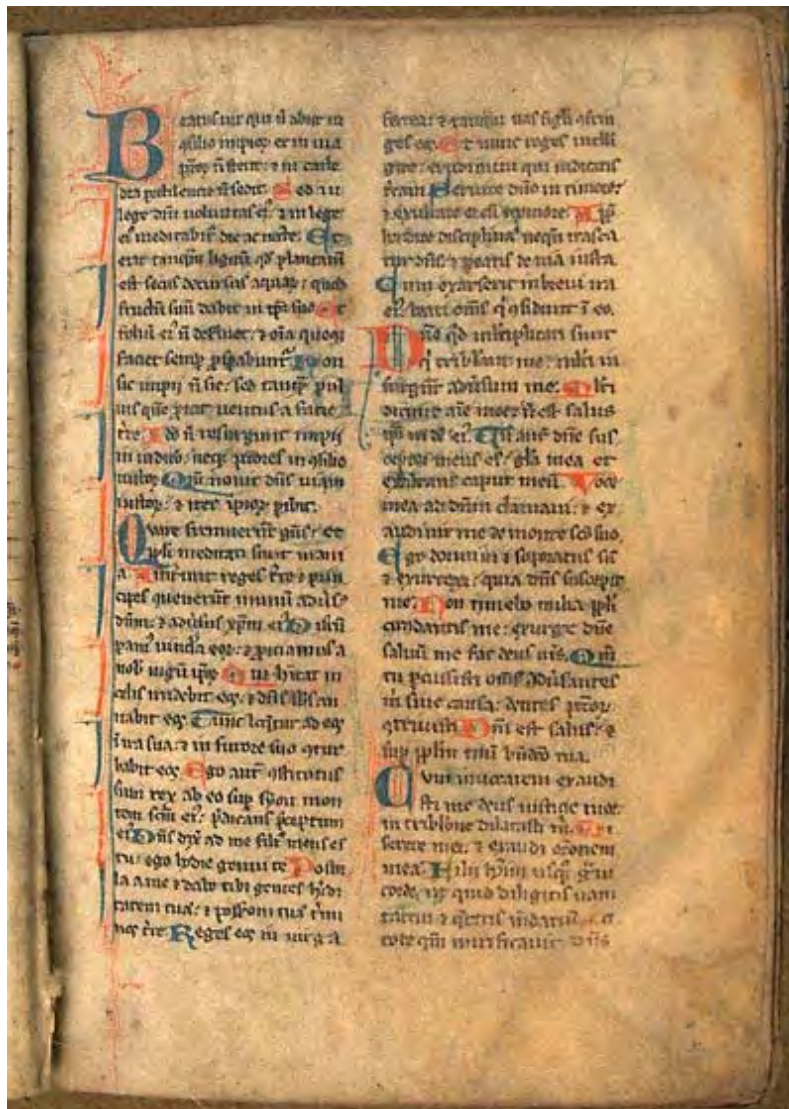 Beatus uir qui n̄ abiit in
ꝯsilio impioꝝ et in uia
pc̄coꝝ n̄ stetit: ⁊ in cathe
dra pestilencie n̄ sedit. Sed in
lege dn̄i uoluntas eiꝰ. ⁊ in lege
eiꝰ meditabit᷑ die ac nocte. Et
erit tanqͣm lignū qd̓ plantatū
est secus decursus aquaꝝ: quod
fructū suū dabit in tp̄e suo. Et
foliū eiꝰ n̄ defluet: ⁊ oīa quecꝫ
faciet semꝑ ꝓsꝑabunt᷑. Non
sic impii n̄ sic: sed tanqͣm pul
uis que ꝓicit uentus a facie
tr̄e. Ideo n̄ resurgunt impii
in iudic̄o: neqꝫ pc̄cores in ꝯsilio
iustoꝝ. Qm̄ nouit dn̄s uiam
iustoꝝ: ⁊ iter ip̄ioꝝ ꝑibit.
Quare fremuer̄t gn̄s: et
ppl̄i meditati sunt inani
a. Astiter̄t reges tr̄e ⁊ prin
cipes ꝯuenerūt in unū adūsꝰ
dn̄m: ⁊ adūsus xp̄m eiꝰ. Disrū
pamꝰ uincl̄a eoꝝ: ⁊ ꝓiciamus a
nob̄ iugū ip̄oꝝ. Qui hītat in
celis irridebit eos: ⁊ dn̄s sbsān
nabit eos. Tunc loq̄tur ad eos
ī ira sua: ⁊ in furore suo ꝯtur
babit eos. Ego aut̄ ꝯstitutus
sum rex ab eo sup̄ syon mon
tem sc̄m eiꝰ: p̄dicans p̄ceptum
eiꝰ. Dn̄s dx̄ ad me filiꝰ meus es
tu: ego hodie genui te. Postu
la a me ⁊ dabo tibi gentes h̓edi
tatem tuā: ⁊ possioīn tuā t̓mi
nos tr̄e. Reges eos in uirga
ferrea: ⁊ tanqͣm uas figl̄i ꝯfrin
ges eos. Et nunc reges intelli
gite: erudimini qui iudicatis
terram. Seruite dn̄o in timore:
⁊ exultate ei cū tremore. App̄
hendite disciplinā neqn̄ irasca
tur dn̄s: ⁊ ꝑeatis de uia iusta.
Cum exarserit in breui ira
eiꝰ: beati om̄s q̄ ꝯfidunt ī eo.
Dn̄e qd̓ ml̓tiplicati sunt
q̄ tribl̄ant me: ml̓ti in
surgūt adūsum me. Ml̓ti
dicunt aīe mee: n̄ est salus
ip̄i in dō eiꝰ. Tu aut̄ dn̄e sus
ceptor meus es: gl̄a mea et
exaltans caput meū. Voce
mea ad dn̄m clamaui: ⁊ ex
audiuit me de monte sc̄o suo.
Ego dormiui ⁊ soporatus sū
⁊ exurrexi: quia dn̄s suscepit
me. Non timebo milia ppl̄i
circūdantis me: exurge dn̄e
saluū me fac deus mꝰ. Qm̄
tu ꝑcussisti om̄s adūsantes
m̄ sine causa: dentes pc̄coꝝ
ꝯtriuisti. Dn̄i est salus: ⁊
sup̄ ppl̄m tuū bn̄dc̄o tua.
Cum inuocarem exaudi
uit me deus iustic̄e mee:
in tribl̄one dilatasti m̄. Mi
serere mei: ⁊ exaudi or̄onem
meā. Filii ho͞im usq̄ꝫ gͣui
corde: ut quid diligitis uani
tatem ⁊ q̄ritis m̄dacīū. Sci
tote qm̄ mirificauit dn̄s